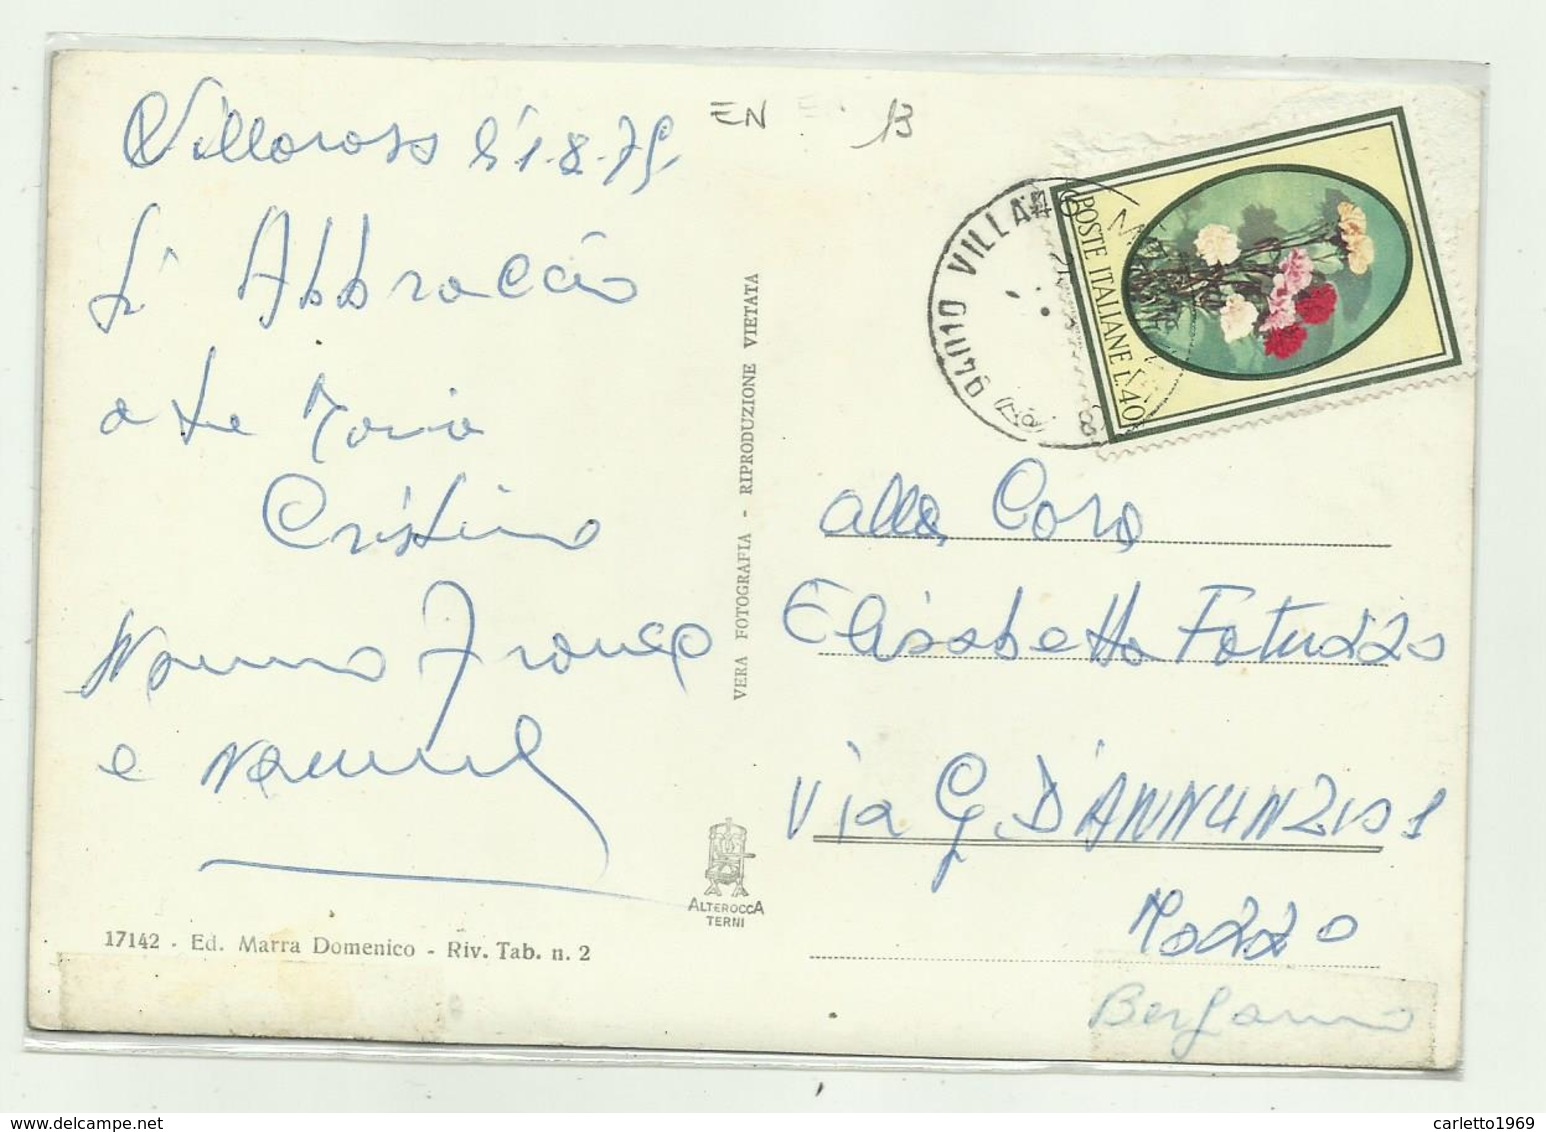 EN 13
Villarosa li 1-8-75
Ti Abbraccio
a te Maria
Cristina
Nonno Franco
e nonna
17142 - Ed. Marra Domenico - Riv. Tab. n. 2
VERA FOTOGRAFIA - RIPRODUZIONE VIETATA
ALTEROCCA
TERNI
94010 VILLAR
POSTE ITALIANE L. 40
alla Cara
Elisabetta Fatuzzo
Via G. D'ANNUNZIO 1
Mozzo
Bergamo
carletto1969